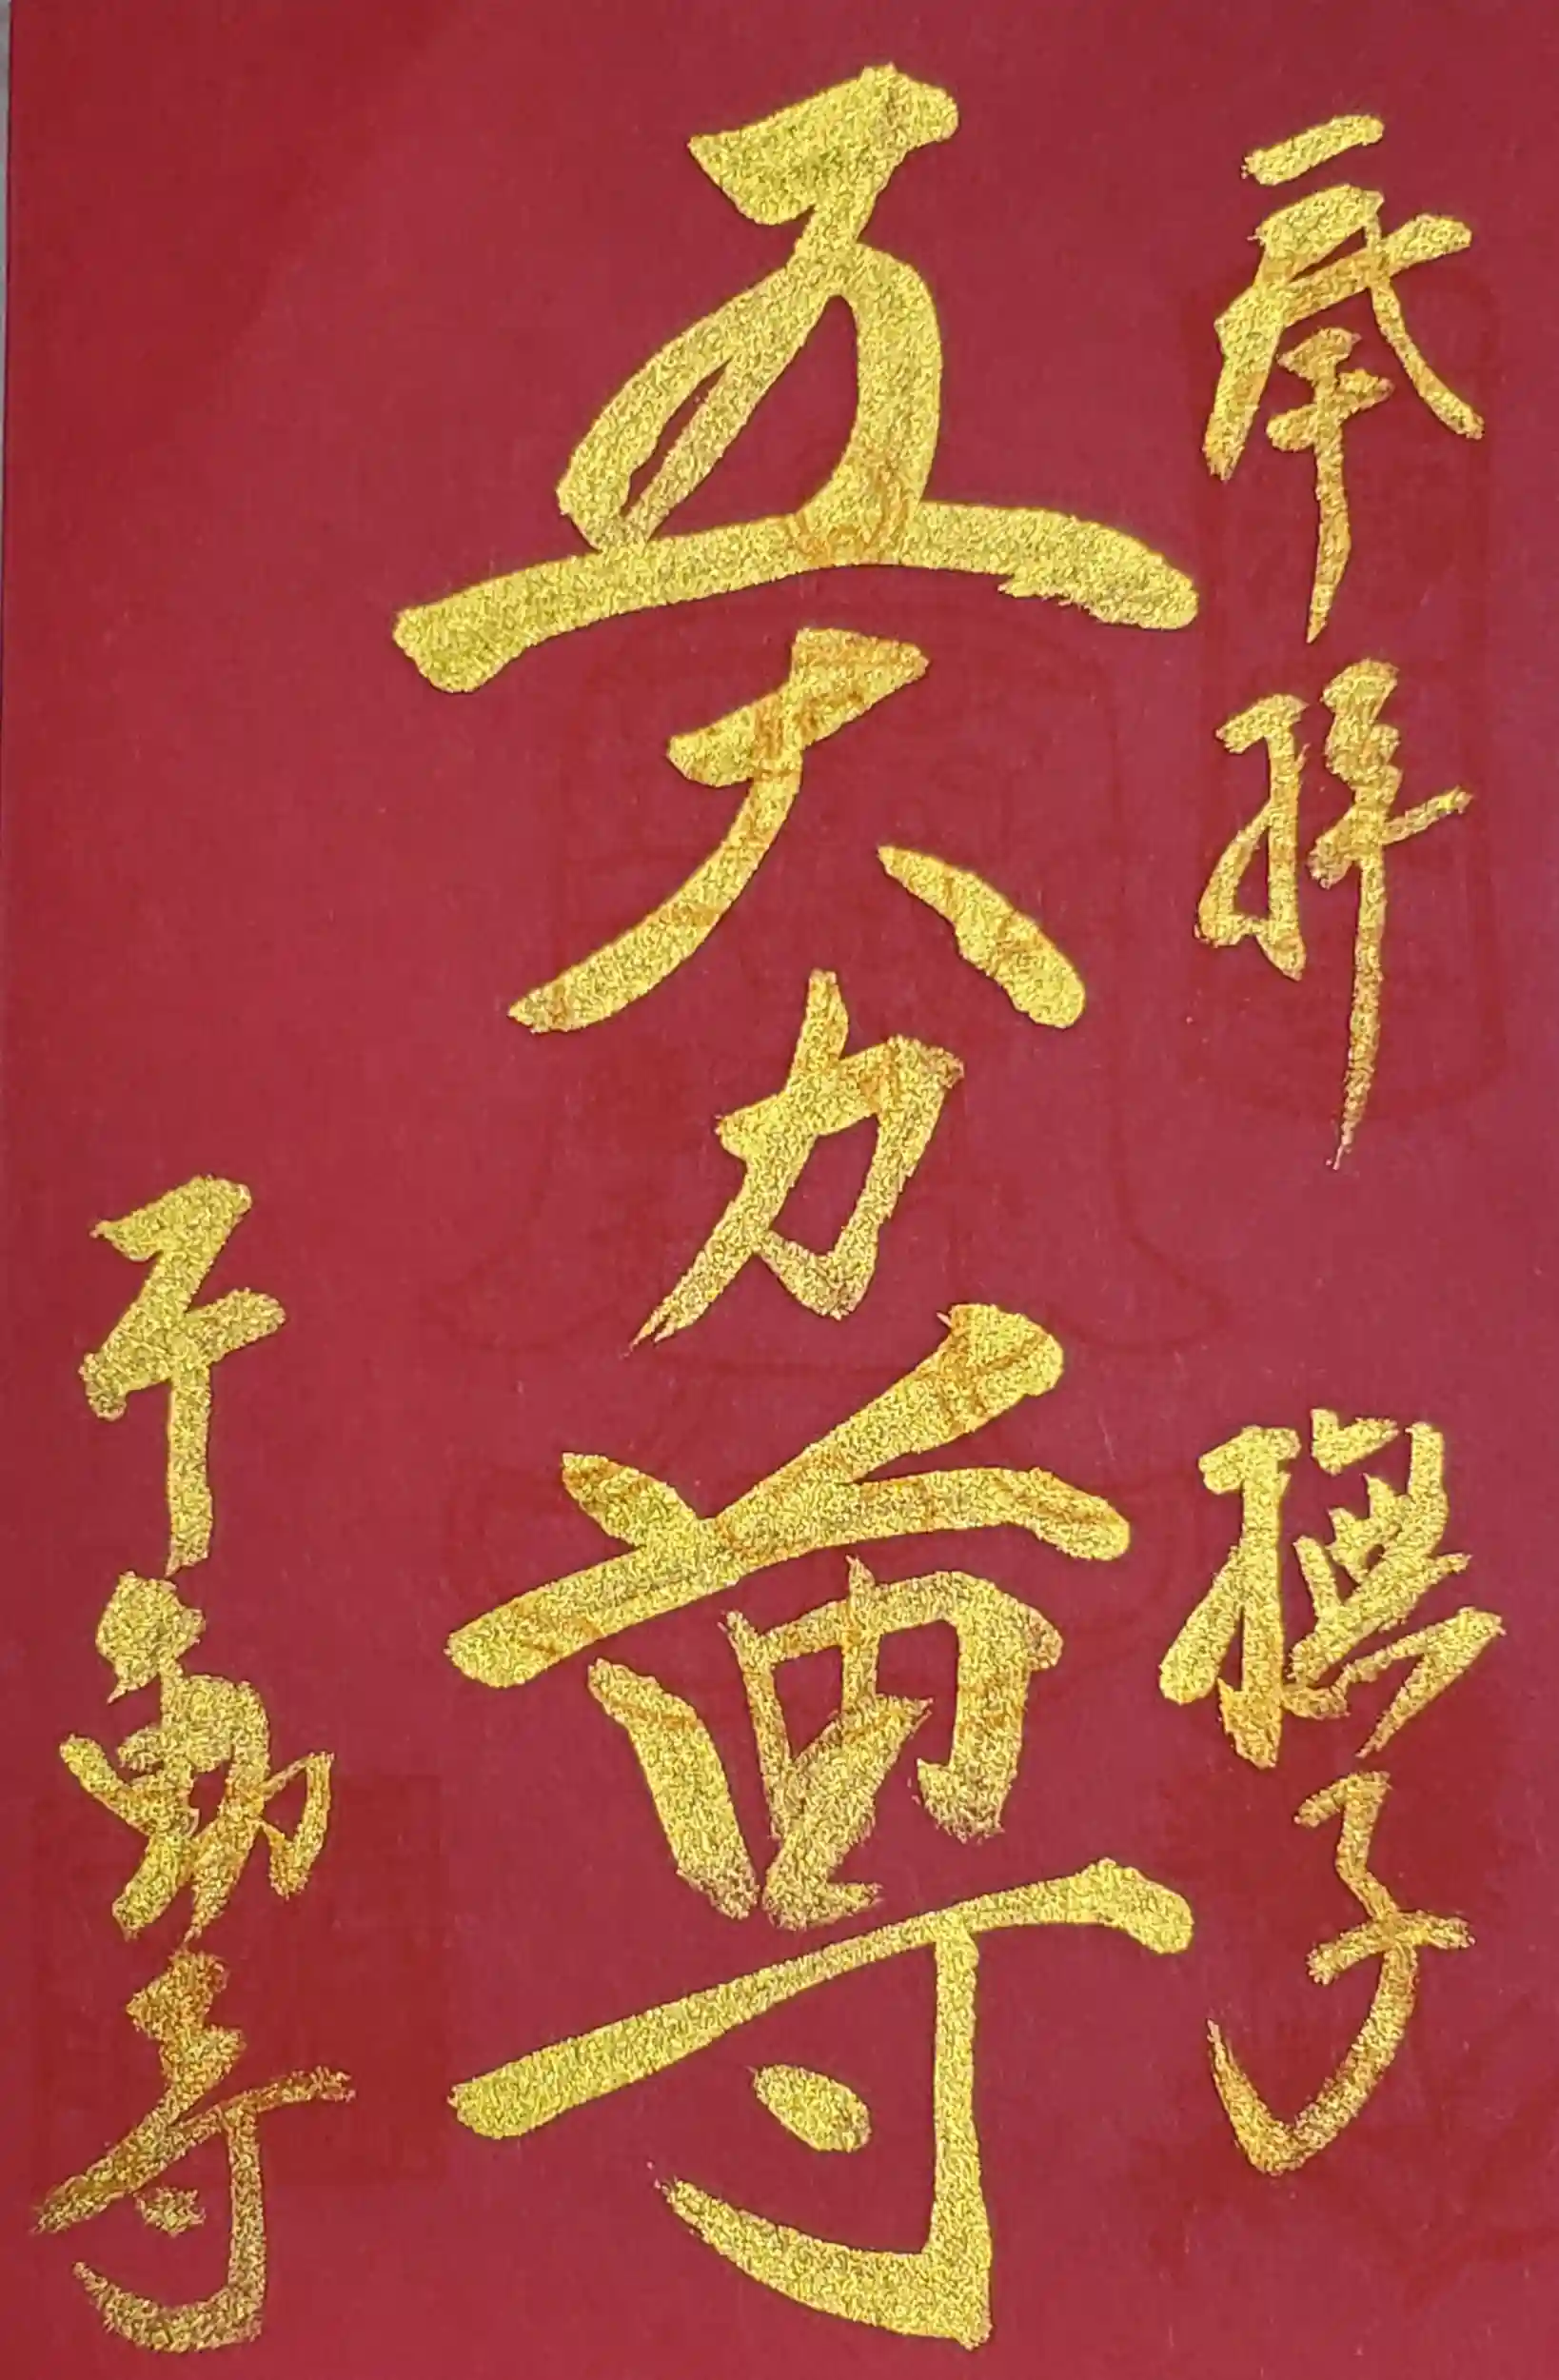 奉拝　撫子
五大力尊
不動寺